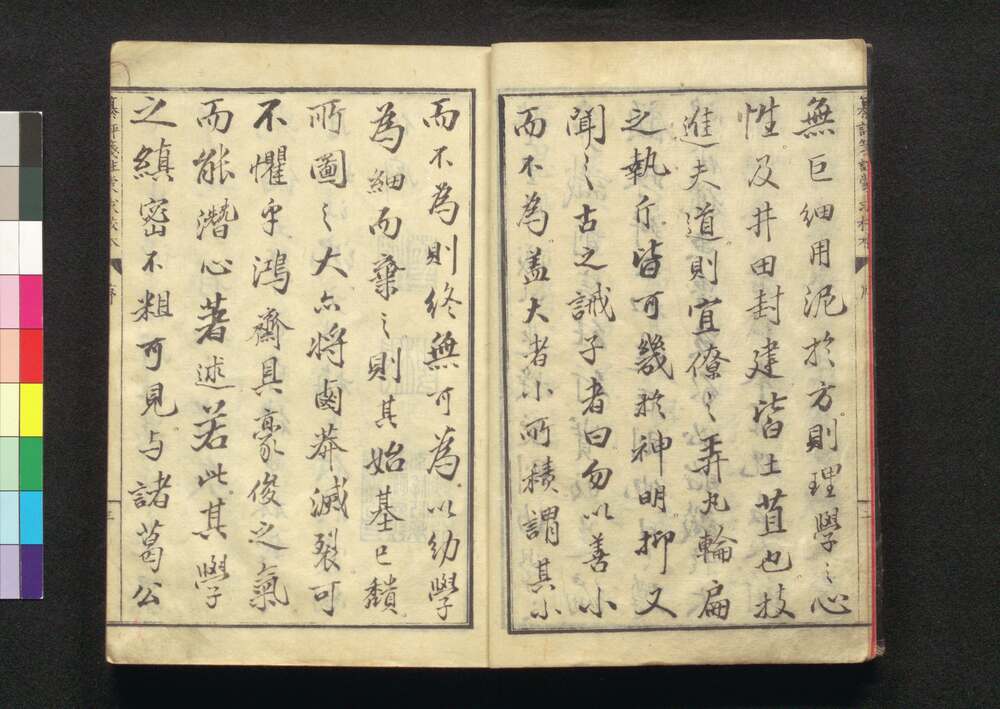 無巨細用泥於方則理學之心
性及井田封建皆土苴也技
進夫道則宜僚之弄丸輪扁
之執斤皆可幾於神明抑又
聞之古之誡子者曰勿以善小
而不為蓋大者小所積謂其小
而不為則終無可為以幼學
為細而棄之則其始基已頹
所圖之大亦將鹵莽滅裂可
不懼乎鴻齋具豪俊之氣
而能潛心著述若此其學
之縝密不粗可見与諸葛公